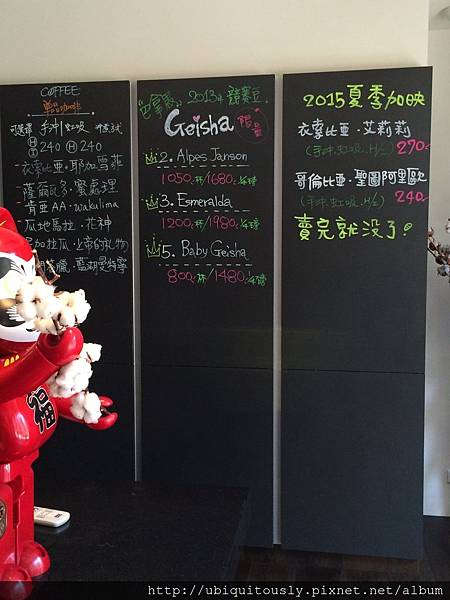 COFFEE
單品咖啡
可選擇 手沖/虹吸 沖煮方式
Ⓗ 240 Ⓗ 240
衣索比亞·耶加雪菲
薩爾瓦多·蜜處理
肯亞AA·wakulima
瓜地馬拉·花神
尼加拉瓜·上帝的礼物
藍湖曼特寧
巴拿馬 2013年 競賽豆
Geisha 限量
2. Alpes Janson
1050元/杯/1680元/半磅
3. Esmeralda
1200元/杯/1980元/半磅
5. Baby Geisha
800元/杯/1480元/半磅
2015夏季加映
衣索比亞·艾莉莉
(手沖.虹吸.H/I) 270
哥倫比亞·聖圖阿里歐
(手沖.虹吸.H/I) 240
賣完就没了!
福
http://ubiquitously.pixnet.net/album